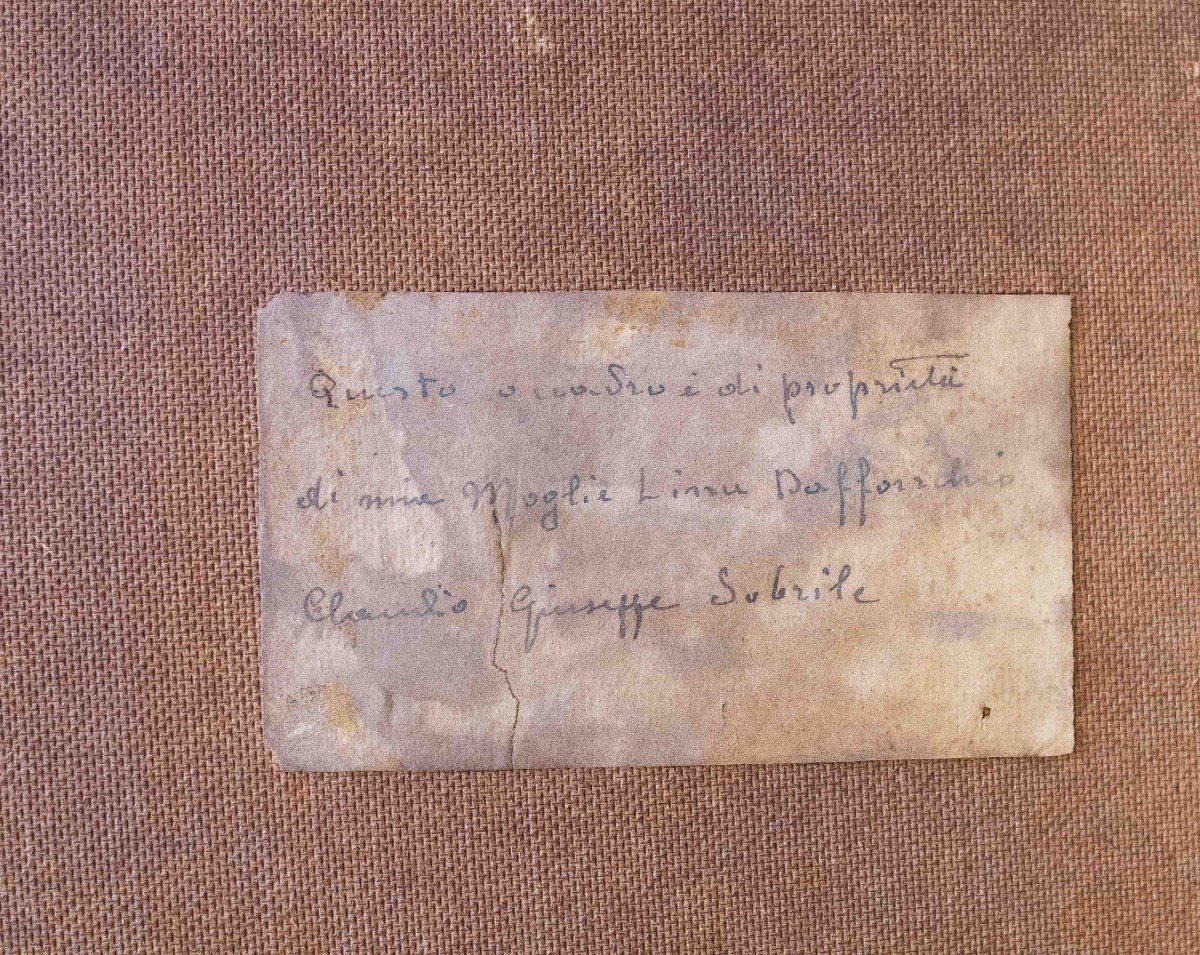 Questo quadro è di proprietà
di mia Moglie Lina
Claudio Giuseppe Sobrile